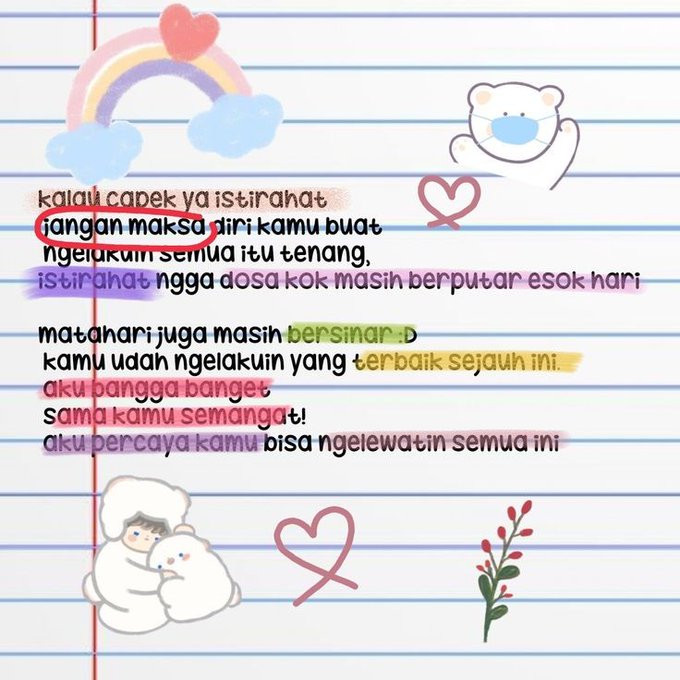 kalau capek ya istirahat
jangan maksa diri kamu buat
ngelakuin semua itu tenang,
istirahat ngga dosa kok masih berputar esok hari
matahari juga masih bersinar :D
kamu udah ngelakuin yang terbaik sejauh ini.
aku bangga banget
sama kamu semangat!
aku percaya kamu bisa ngelewatin semua ini